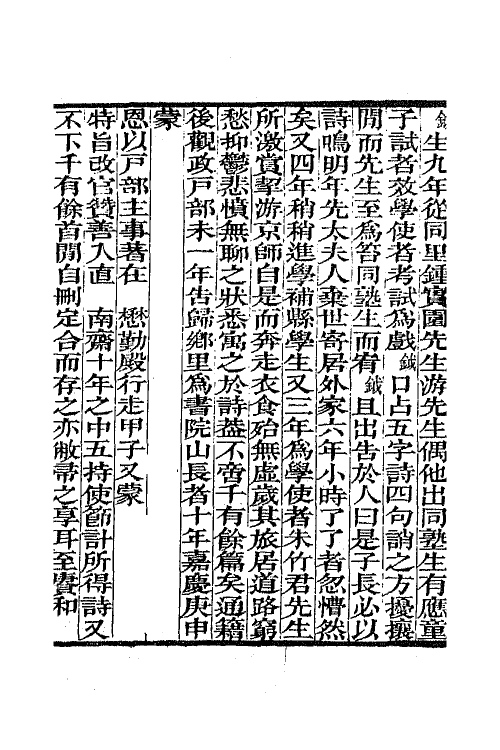 鉞生九年從同里鍾寳園先生游先生偶他出同塾生有應童
子試者效學使者考試為戲鉞口占五字詩四句誚之方擾攘
閒而先生至為笞同塾生而宥鉞且出告於人曰是子長必以
詩鳴明年先太夫人棄世寄居外家六年小時了了者忽懵然
矣又四年稍稍進學補縣學生又三年為學使者朱竹君先生
所激賞挈游京師自是而奔走衣食殆無虛歲其旅居道路窮
愁抑鬱悲憤無聊之狀悉寓之於詩葢不啻千有餘篇矣通籍
後觀政戸部未一年告歸鄉里為書院山長者十年嘉慶庚申
蒙
恩以戸部主事著在　懋勤殿行走甲子又蒙
特旨改官贊善入直　南齋十年之中五持使節計所得詩又
不下千有餘首閒自刪定合而存之亦敝帚之享耳至賡和